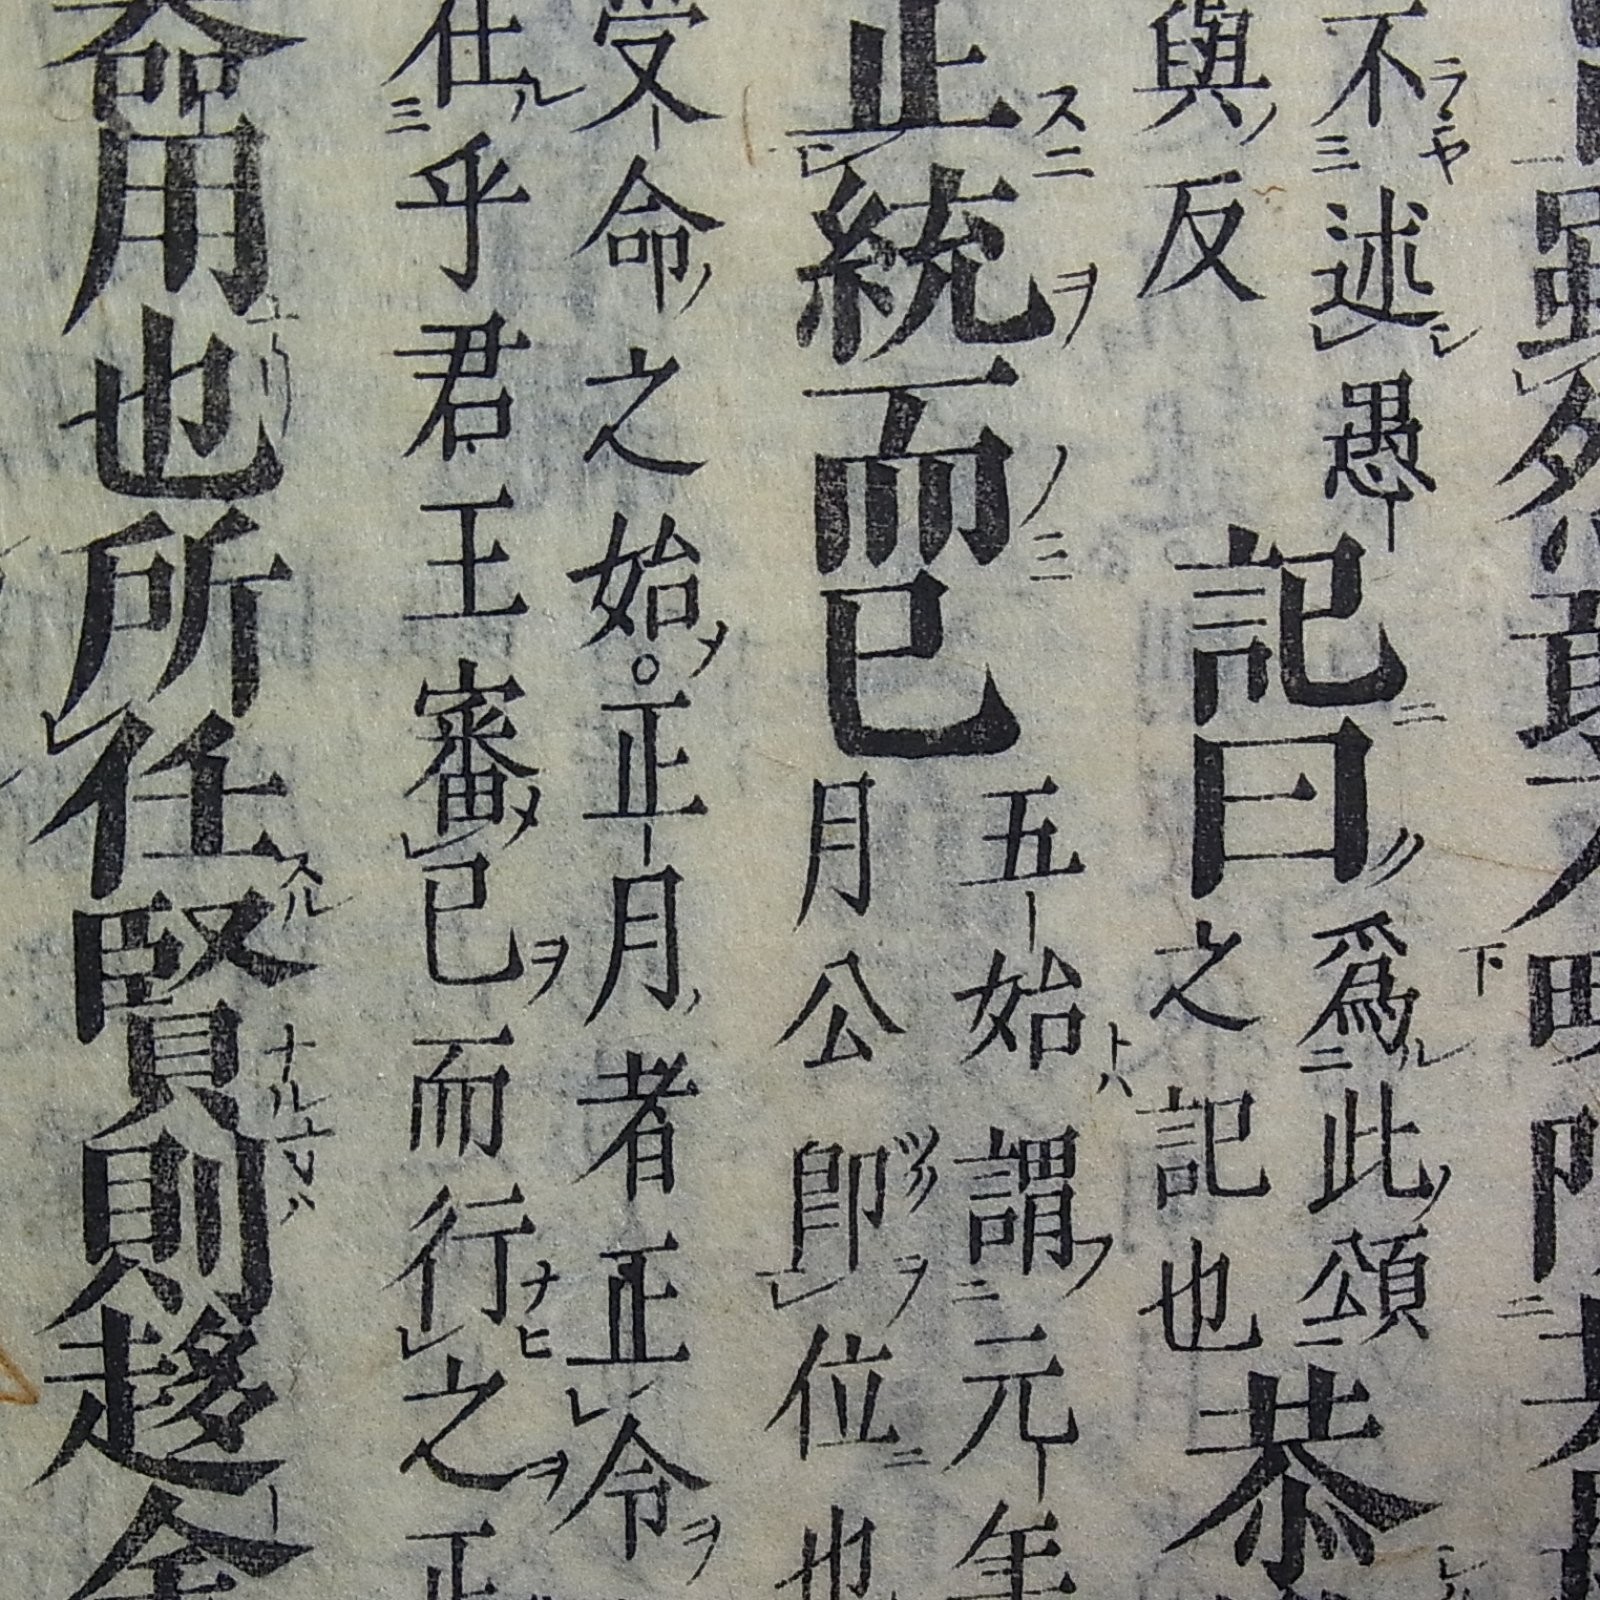 雖然敢不略陳
不述愚
與反
記曰
爲此頌
之記也
恭
正統而已
五始謂元年
月公即位也
受命之始。正月者正正令
在乎君王審已而行之正
器用也所任賢則趍舍